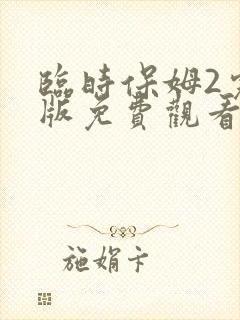 臨時保姆2
版免費觀看
施娟卞